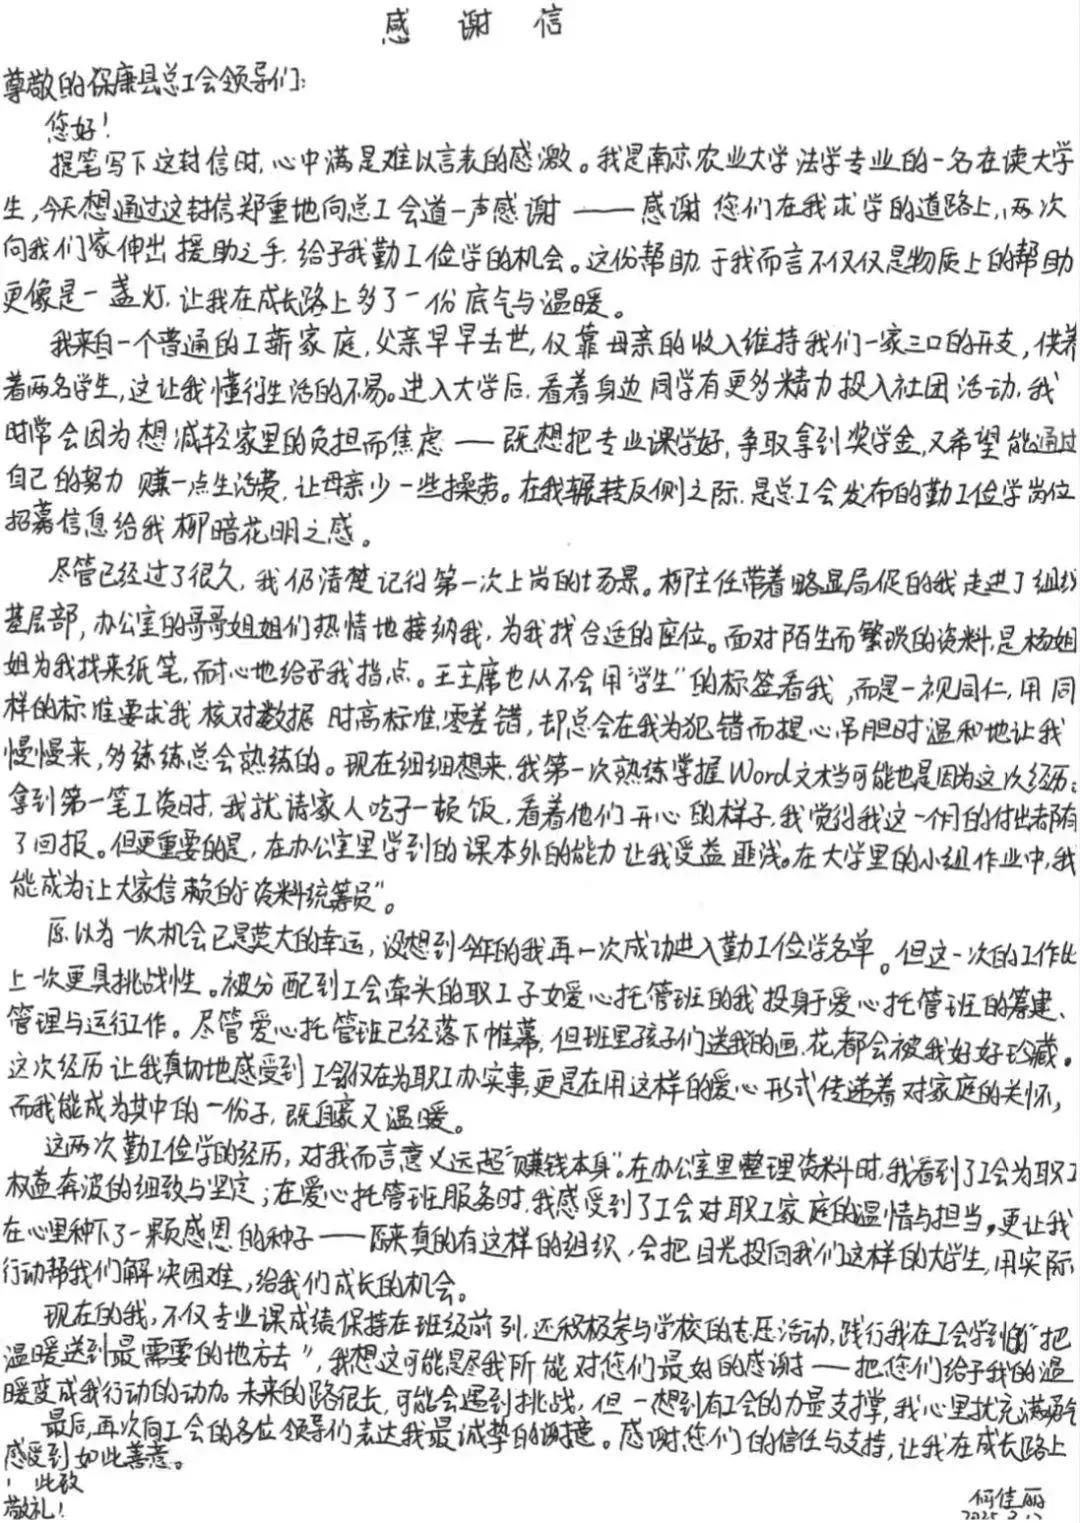 感谢信
尊敬的保康县总工会领导们:
您好!
提笔写下这封信时,心中满是难以言表的感激。我是南京农业大学法学专业的一名在读大学
生,今天想通过这封信郑重地向总工会道一声感谢——感谢您们在我求学的道路上,两次
向我们家伸出援助之手,给予我勤工俭学的机会。这份帮助,于我而言不仅仅是物质上的帮助
更像是一盏灯,让我在成长路上多了一份底气与温暖。
我来自一个普通的工薪家庭,父亲早早去世,仅靠母亲的收入维持我们一家三口的开支,供养
着两名学生,这让我懂得生活的不易。进入大学后,看着身边同学有更多精力投入社团活动,我
时常会因为想减轻家里的负担而焦虑——既想把专业课学好,争取拿到奖学金,又希望能通过
自己的努力赚一点生活费,让母亲少一些操劳。在我辗转反侧之际,是总工会发布的勤工俭学岗位
招募信息给我柳暗花明之感。
尽管已经过了很久,我仍清楚记得第一次上岗的场景。柳主任带着略显局促的我走进了组织
基层部,办公室的哥哥姐姐们热情地接纳我,为我找合适的座位。面对陌生而繁琐的资料,是杨姐
姐为我找来纸笔,耐心地给予我指点。王主席也从不会用“学生”的标签看我,而是一视同仁,用同
样的标准要求我核对数据时高标准,零差错,却总会在我为犯错而提心吊胆时温和地让我
慢慢来,多练练总会熟练的。现在细细想来,我第一次熟练掌握Word文档可能也是因为这次经历。
拿到第一笔工资时,我就请家人吃了一顿饭,看着他们开心的样子,我觉得我这一个月的付出都有
了回报。但更重要的是,在办公室里学到的课本外的能力让我受益匪浅。在大学里的小组作业中,我
能成为让大家信赖的“资料统筹员”。
原以为一次机会已是莫大的幸运,没想到今年的我再一次成功进入勤工俭学名单。但这一次的工作比
上一次更具挑战性。被分配到工会牵头的职工子女爱心托管班的我投身于爱心托管班的筹建、
管理与运行工作。尽管爱心托管班已经落下帷幕,但班里孩子们送我的画,花,都会被我好好珍藏。
这次经历让我真切地感受到工会不仅在为职工办实事,更是在用这样的爱心形式传递着对家庭的关怀,
而我能成为其中的一份子,既自豪又温暖。
这两次勤工俭学的经历,对我而言意义远超“赚钱本身”。在办公室里整理资料时,我看到了工会为职工
权益奔波的细致与坚定;在爱心托管班服务时,我感受到了工会对职工家庭的温情与担当。更让我
在心里种下了一颗感恩的种子——原来真的有这样的组织,会把目光投向我们这样的大学生,用实际
行动帮我们解决困难,给我们成长的机会。
现在的我,不仅专业课成绩保持在班级前列,还积极参与学校的志愿活动,践行我在工会学到的“把
温暖送到最需要的地方去”,我想这可能是尽我所能对您们最好的感谢——把您们给予我的温
暖变成我行动的动力。未来的路很长,可能会遇到挑战,但一想到有工会的力量支撑,我心里就充满勇气
最后,再次向工会的各位领导们表达我最诚挚的谢意。感谢您们的信任与支持,让我在成长路上
感受到如此善意。
此致
敬礼!
何佳丽